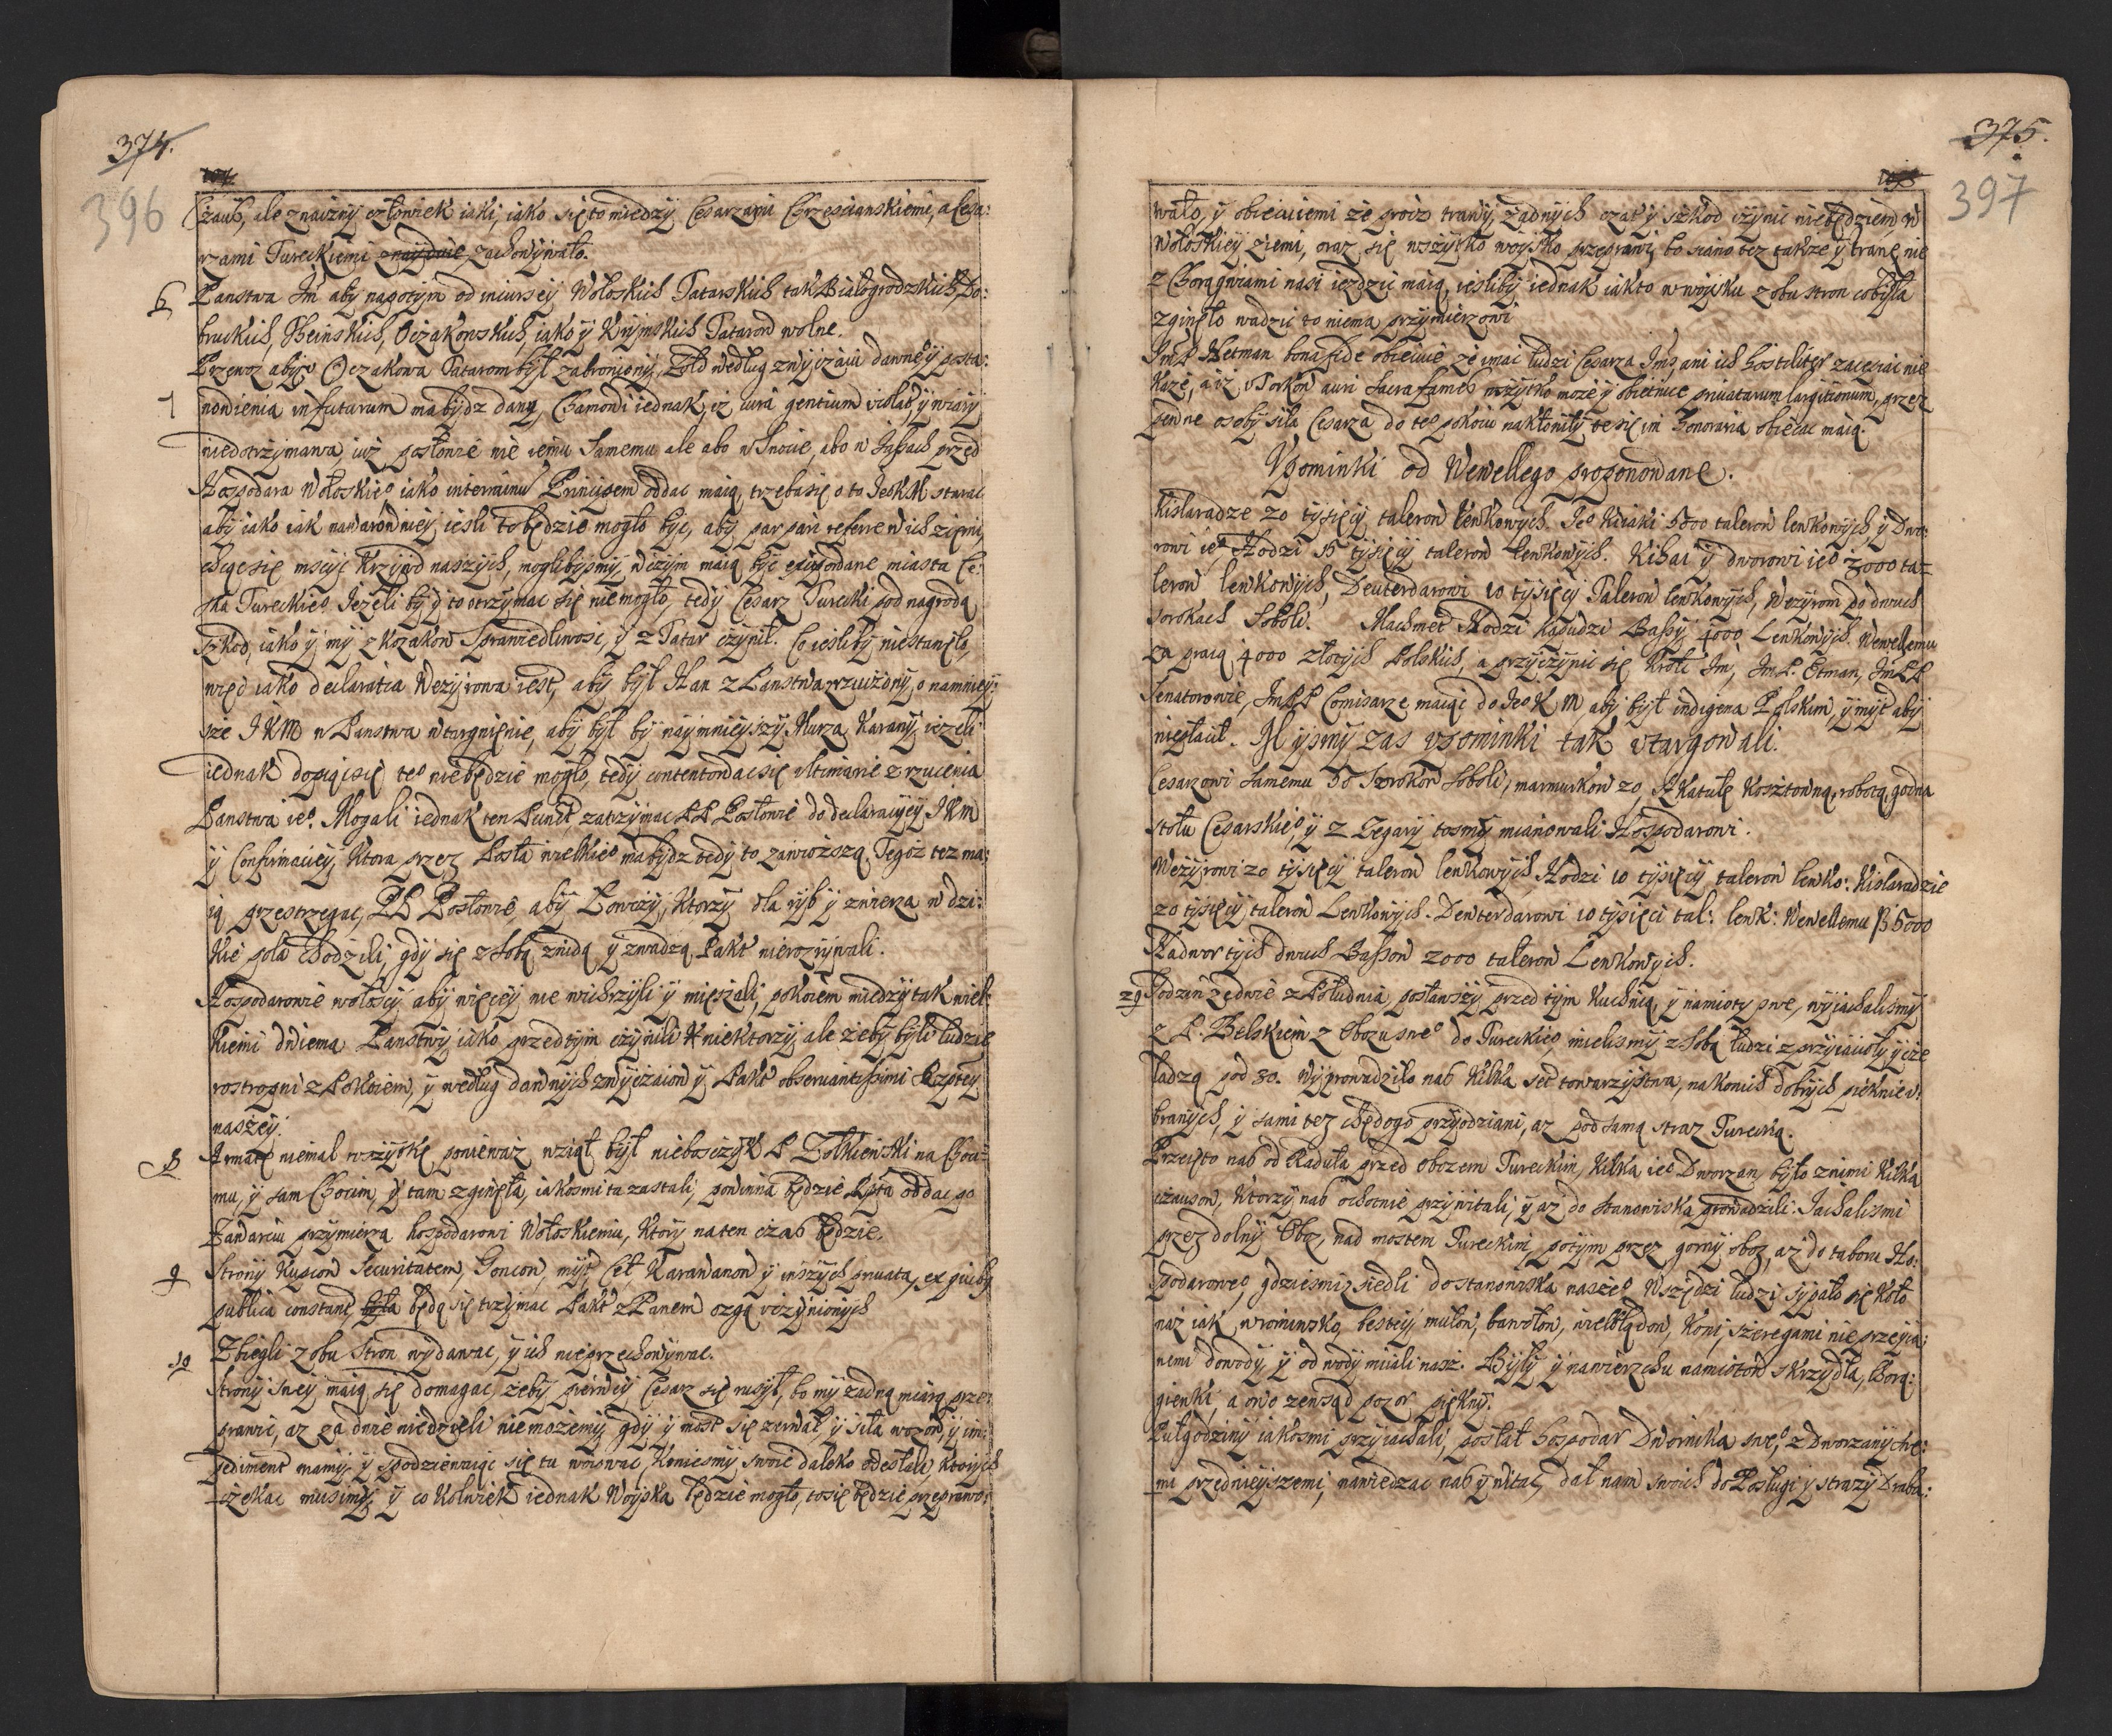 374.
396
Czauß, ale znaczny człowiek iaki, iako się to miedzy Cesarzami Chrzescianskiemi, a Cesa:
rzami Tureckiemi znayduie zachowywało.
6 Panstwa Jm aby napotym od incursey Wołoskich Tatarskich tak Białogrodzkich, Do:
bruckich, Oczakowskich, iako y Krymskich Tatarow wolne.
7 Przewoz aby v Oczakowa Tatarom był zabroniony, Zołd według zwyczaiu dawney posta:
nowienia in futurum ma bydz dany, Chamowi iednak, iz iura gentium violat, y wiary
niedotrzymawa, iuż posłowie nie iemu samemu ale abo w Snocie, abo w Jassach przed
Hospodara Wołoskie° iako interminu Principem oddac maią, trzeba się o to Je° K M starac
aby iako iak nawarowniey, iesli to będzie mogło byc, aby par pari referre w ich ziemi,
chcąc się mscyc krzywd naszych, moglibysmy, wczym maią byc miasta Ce:
ska Tureckie°. Jeżeli by y to otrzymac się nie mogło, tedy Cesarz Turecki pod nagrodą
szkod, iako y my z kozakow sprawiedliwosc, y z Tatar czynił. Co iesliby niestanęło,
więc iako declaratia Wezyrowa iest, aby był Han z Panstwa zrzucony, o namniey:
sze J K M w Panstwa wtargnienie, aby był by naymnieyszy Murza karany, iezeli
iednak dopiąc się te° niebędzie mogło, tedy contentowac się vltimarie z rzucenia
Panstwa ie°. Mogali iednak ten Punct, zatrzymac P P Posłowie do declaraciyey J K M
y Confirmaciey, ktora przez Posła wielkie° ma bydz tedy to zawiozszą. Tegoz tez ma:
ią przestrzegac, PP Posłowie, aby Łowczy, ktorzy dla ryb y zwierza w dzi:
kie pola chodzili, gdy się z sobą znidą y zwadzą, Pakt nierozrywali.
Hospodarowie wołoscy aby więcey nie wichrzyli y mięszali, pokoiem miedzy tak wiel:
kiemi dwiema Panstwy, iako przedtym czynili niektorzy, ale żeby byli ludzie
rostropni z Pokoiem, y według dawnych zwyczaiow y Pakt obseruantissimi Rzptey
naszey.
8 Armatę niemal wszytkę ponieważ wziął był nieboszczyk P Zołkiewski na Choci:
mu, y sam Chocim, y tam zginęła, iakosmi ta zastali, powinna będzie Rpta oddac go
Zawarciu przymierza hospodarowi Wołoskiemu, ktory na ten czas będzie.
9 Strony Kupcow Securitatem, Goncow, myt, Cet, Karawanow y inszych priuata, ex quibg
publica constant, będą się trzymac Pakt z Panem ozgą vczynionych
10 Zbiegli z obu stron wydawac, y ich nieprzechowywac.
Strony sney maią się domagac, zeby pierwey Cesarz się ruszył, bo my żadną miarą prze:
prawic, az za dwie niedzieli niemożemy, gdy y most się zerwał, y siła wozow y im:
pediment mamy, y spodziewaiąc się tu woiowac, koniesmy swoie daleko odesłali, ktorych
czekac musimy, y co kolwiek iednak Woyska będzie mogło, to się będzie przeprawo:
375.
397
wało, y obiecuiemi że procz trawy, żadnych czat y szkod czynic niebędziem w
Wołoskiey ziemi, oraz się wszytko woysko przeprawi, bo siano tez takze y trawę nie
z Chorągwiami nasi iezdzic maią, iesliby iednak iakto w woysku z obu stron co było
zginęło wadzic to niema przymierzowi
Jm P Hetman bona fide obiecuie, ze vmac ludzi Cesarza Jmo, ani ich hostiliter zaczepiac nie
kaze, a iż v Porkow auri sacra fames wszytko może y obietnice priuatarum largitionum, przez
pewne osoby siła Cesarza do te° pokoiu nakłoniły, te się im honoraria obiecac maią.
Vpominki od Wewellego proponowane.
Kislaradze 20 tysięcy talerow lewkowych. Je° Kiiaki 5000 talerow lewkowych, y Dwo:
rowi ie°. Hodzi 15 tysięcy talerow lewkowych. Kihai y dworowi ie° 3000 ta=
lerow lewkowych, Deuterdarowi 10 tysięcy Talerow lewkowych, Wezyrom po dwuch
sorokach soboli. Machmet Hodzi Kadudzi Bassy 4000 Lewkowych. Wewellemu
za pracą 4000 złotych Polskich, a przyczynic się Krolc Jm, Jm P. Etman, Jm PP
Senatorowie, Jm PP Comisarze maiąc do Je° K M, aby był indigena Polskim, y myt aby
niepłacił. My smy zas vpominki tak vtargowali.
Cesarzowi samemu 50 Sorokow soboli, marmurkow 20, Skatułę kosztowną, robotą, godna
stołu Cesarskie°, y z Zegary tosmy mianowali Hospodarowi.
Wezyrowi 20 tysięcy talerow lewkowych, Hodzi 10 tysięcy talerow lewko: Kislaradzie
20 tysięcy talerow Lewkowych. Dewterdarowi 10 tysięci tal: lewk: Wewellemu ß 5000
Nadwor tych dwuch Bassow 2000 talerow Lewkowych.
29 Godzin zedwie z Południa, posławszy przed tym Kuchnią, y namioty swe, wyiachalismy
z P. Belskiem z Obozu swe° do Tureckie°, mielismy z sobą ludzi z przyiacioły y cze
ladzą pod 30. Wyprowadziło nas kilka set towarzystwa, na koniech dobrych pieknie v:
branych, y sami tez chędogo przyodziani, az pod samą straz Turecką.
Przeięto nas od Raduła przed obozem Tureckim, kilka ie° Dworzan, było z nimi kilka
czausow, ktorzy nas ochotnie przywitali, y az do stanowiska prowadzili. Jachalismi
przez dolny Oboz, nad mostem Tureckim, potym przez gorny oboz, az do taboru Ho:
spodarowe°, gdziesmi zsiedli do stanowiska nasze°. Wszędzi ludzi sypało się koło
naz iak w romiwsko, bestiy, mułow, bawołow, wielbłądow, koni, szeregami nie przeyrza:
nemi dowody, y od wody miiali nasz. Były y nawierzchu namiotow skrzydła, Chorą:
giewki, a owo zewsząd pozor piękny.
Pułgodziny iakosmi przyiachali, posłał hospodar Dwornika swe°, z Dworzany ctre:
mi przednieyszemi, nawiedzac nas y witac, dał nam swoich do Posługi y strazy Draba: